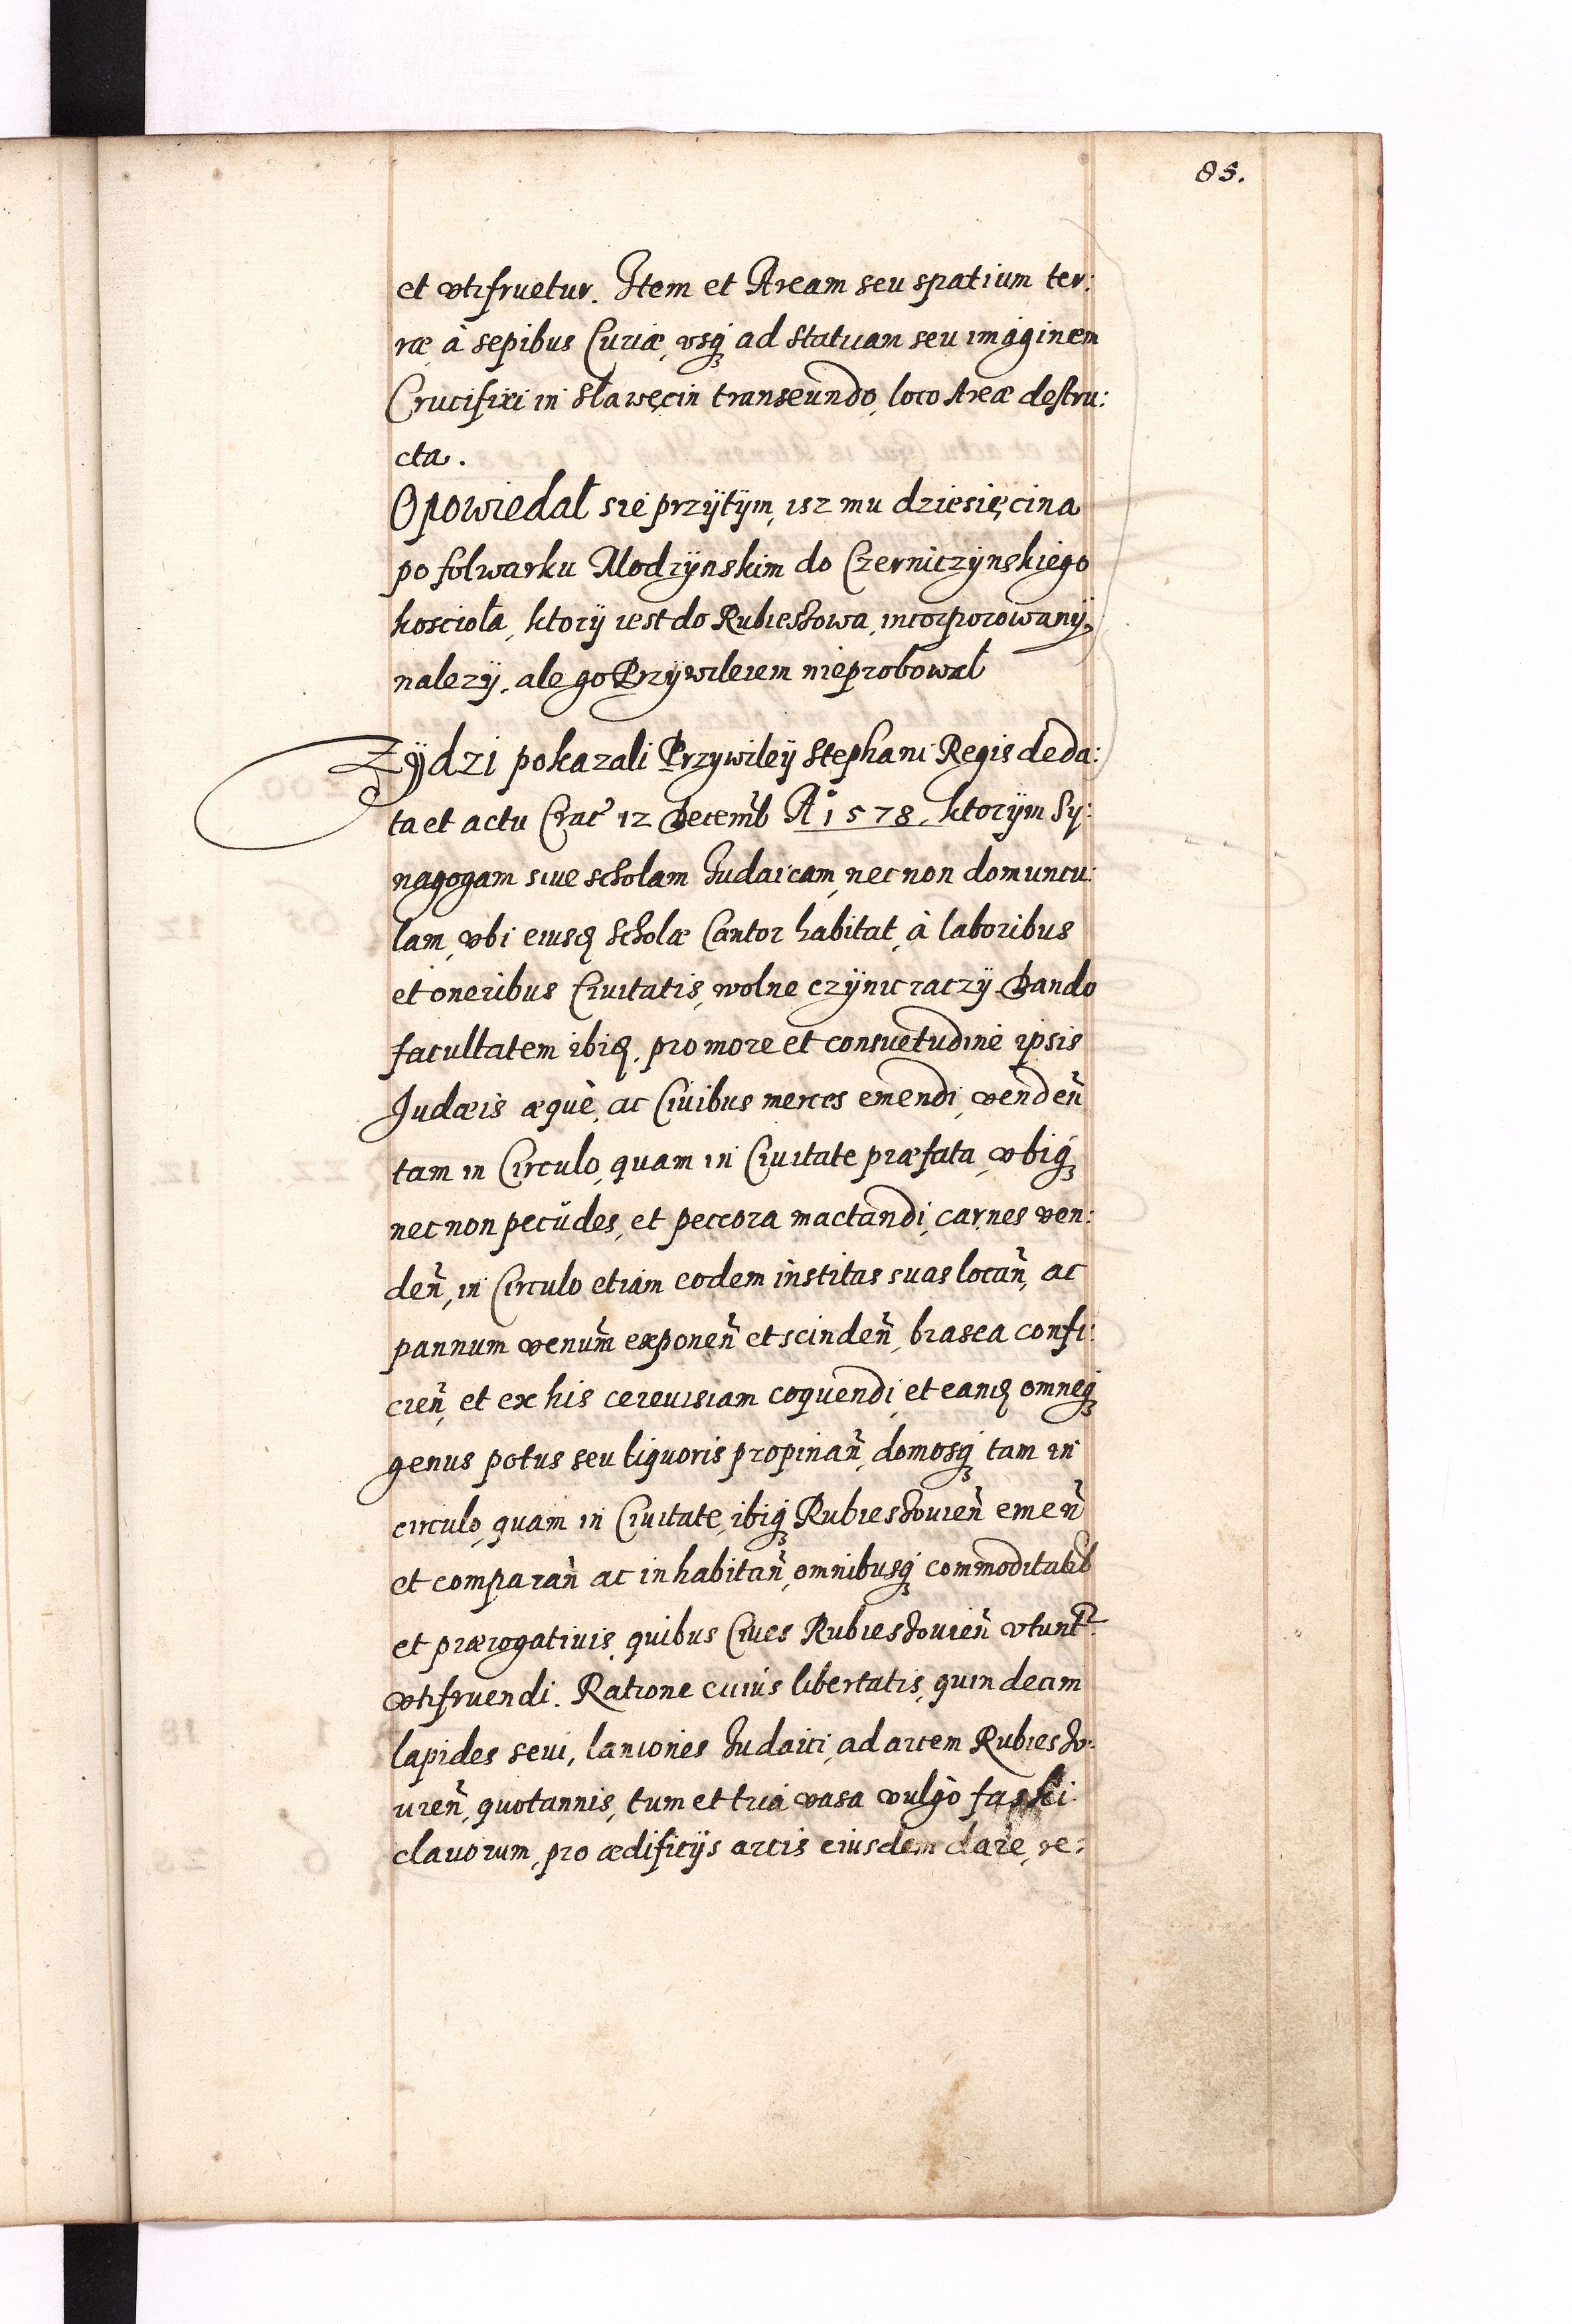 85.
et vtifruetur. Item et Aream seu spatium ter:
ræ, à sepibus Curiæ, vsq ad Statuam seu imaginem
Crucifixi in Sławęcin transeundo, loco Areæ destru:
cta.
Opowiedał sie przÿtÿm, isz mu dziesięcina
po folwarku Modrÿnskim do Czerniczÿnskiego
koscioła, ktorÿ iest do Rubieshowa, incorporowanÿ,
nalezÿ, ale go Przÿwileiem nieprobował
Zÿdzi pokazali Przywileÿ Stephani Regis de da:
ta et actu Crac 12 Decemb A° 1578, ktorÿm Sy:
nagogam siue scholam Iudaicam, nec non domuncu:
lam, vbi eiusd Scholæ Cantor habitat, à laboribus
et oneribus Ciuitatis, wolne czÿnic raczÿ. Dando
facultatem ibid. pro more et consuetudine ipsis
Iudæis æquè, ac Ciuibus merces emendi, venden̄
tam in Circulo, quam in Ciuitate præfata, vbiq
nec non pecudes, et peccora mactandi, carnes ven:
den̄, in Circulo etiam eodem institas suas locan̄, ac
pannum venum̄ exponen̄ et scinden̄, brasea confi:
cien̄, et ex his cereuisiam coquendi, et eand omneq
genus potus seu liquoris propinan̄, domosq tam in
circulo, quam in Ciuitate, ibiq Rubieshouien̄ emen̄
et comparan̄ ac inhabitan̄, omnibusq commoditatib
et prærogatiuis, quibus Ciues Rubieshouien̄ vtunt
vtifruendi. Ratione cuius libertatis, quindecim
lapides seui, laniones Iudaici, ad arcem Rubiesho:
uien̄, quotannis, tum et tria vasa vulgo faski
clauorum, pro ædificÿs arcis eiusdem dare, re: